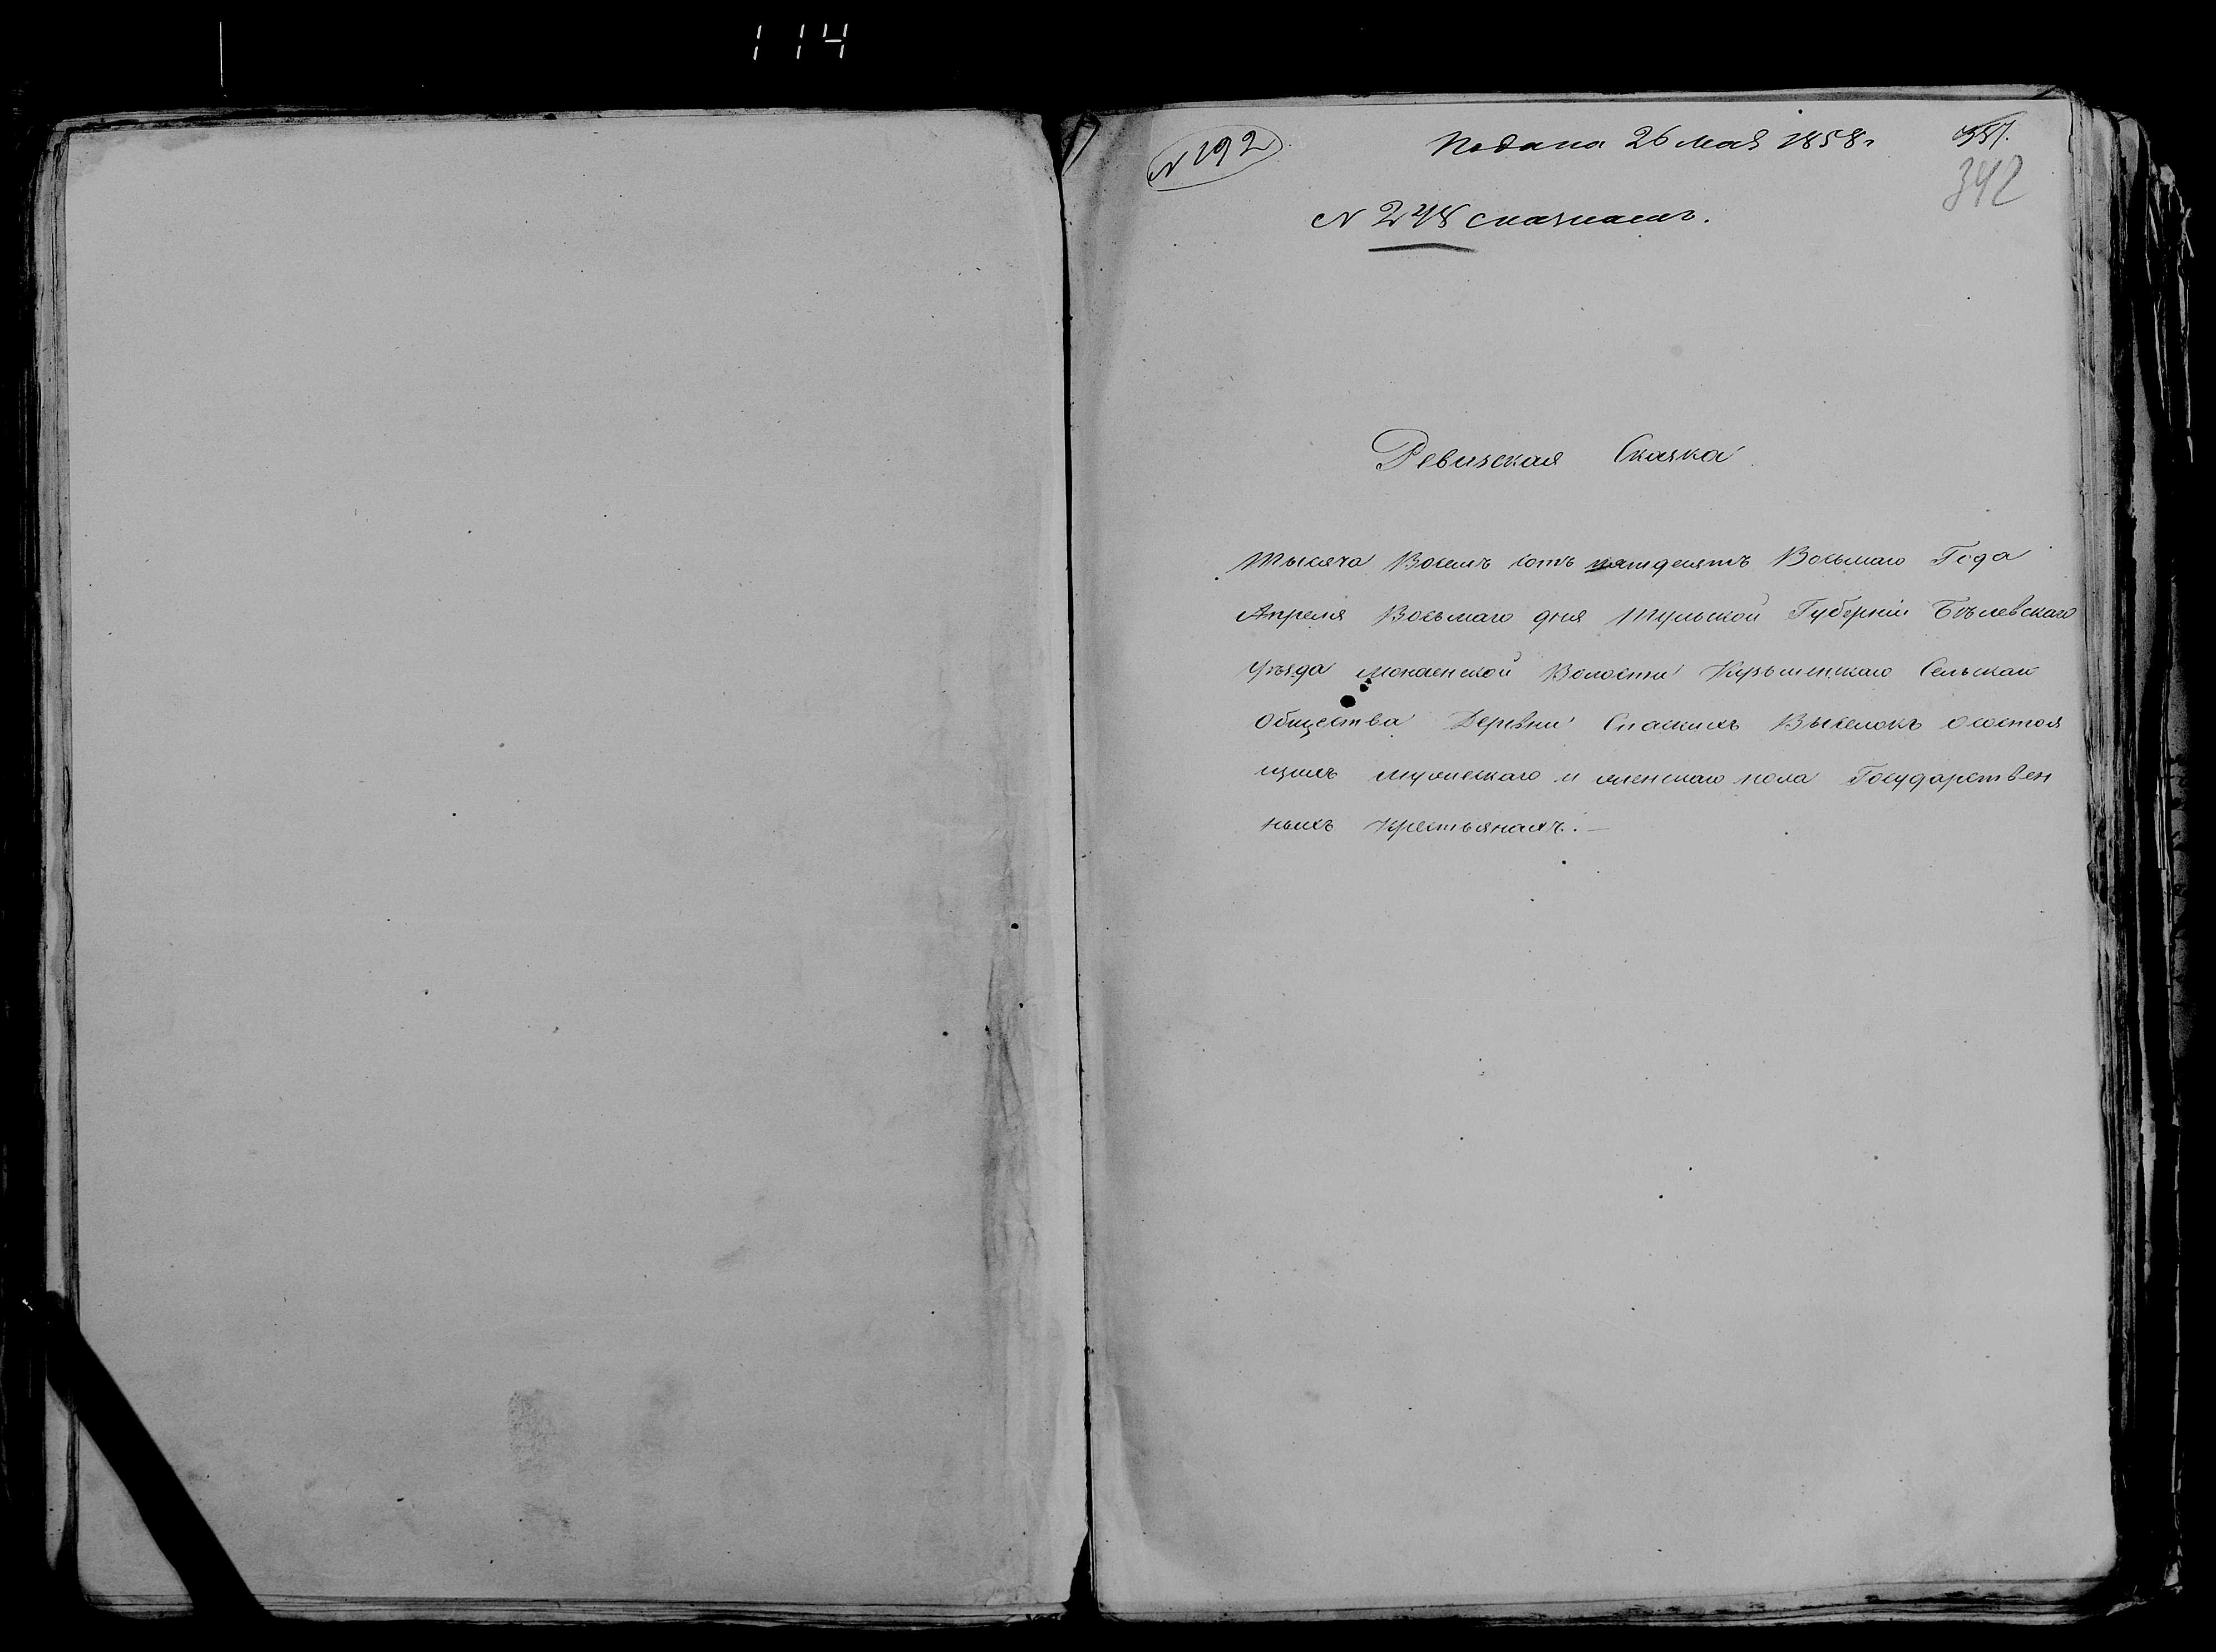 114
N 192
Подана 26 Мая 1858 г
387.
342
N 248
Ревизская Сказка
Тысяча Восемъ сотъ пятдесятъ Восьмаго Года
Апреля Восьмаго дня Тульской Губерніи Бѣлевскаго
Уѣзда Монаенской Волости Сельскаго
Общества Деревни Спаскихъ Выселокъ о состоя
щихъ мужескаго и женскаго пола Государствен
ныхъ крестьянахъ.—